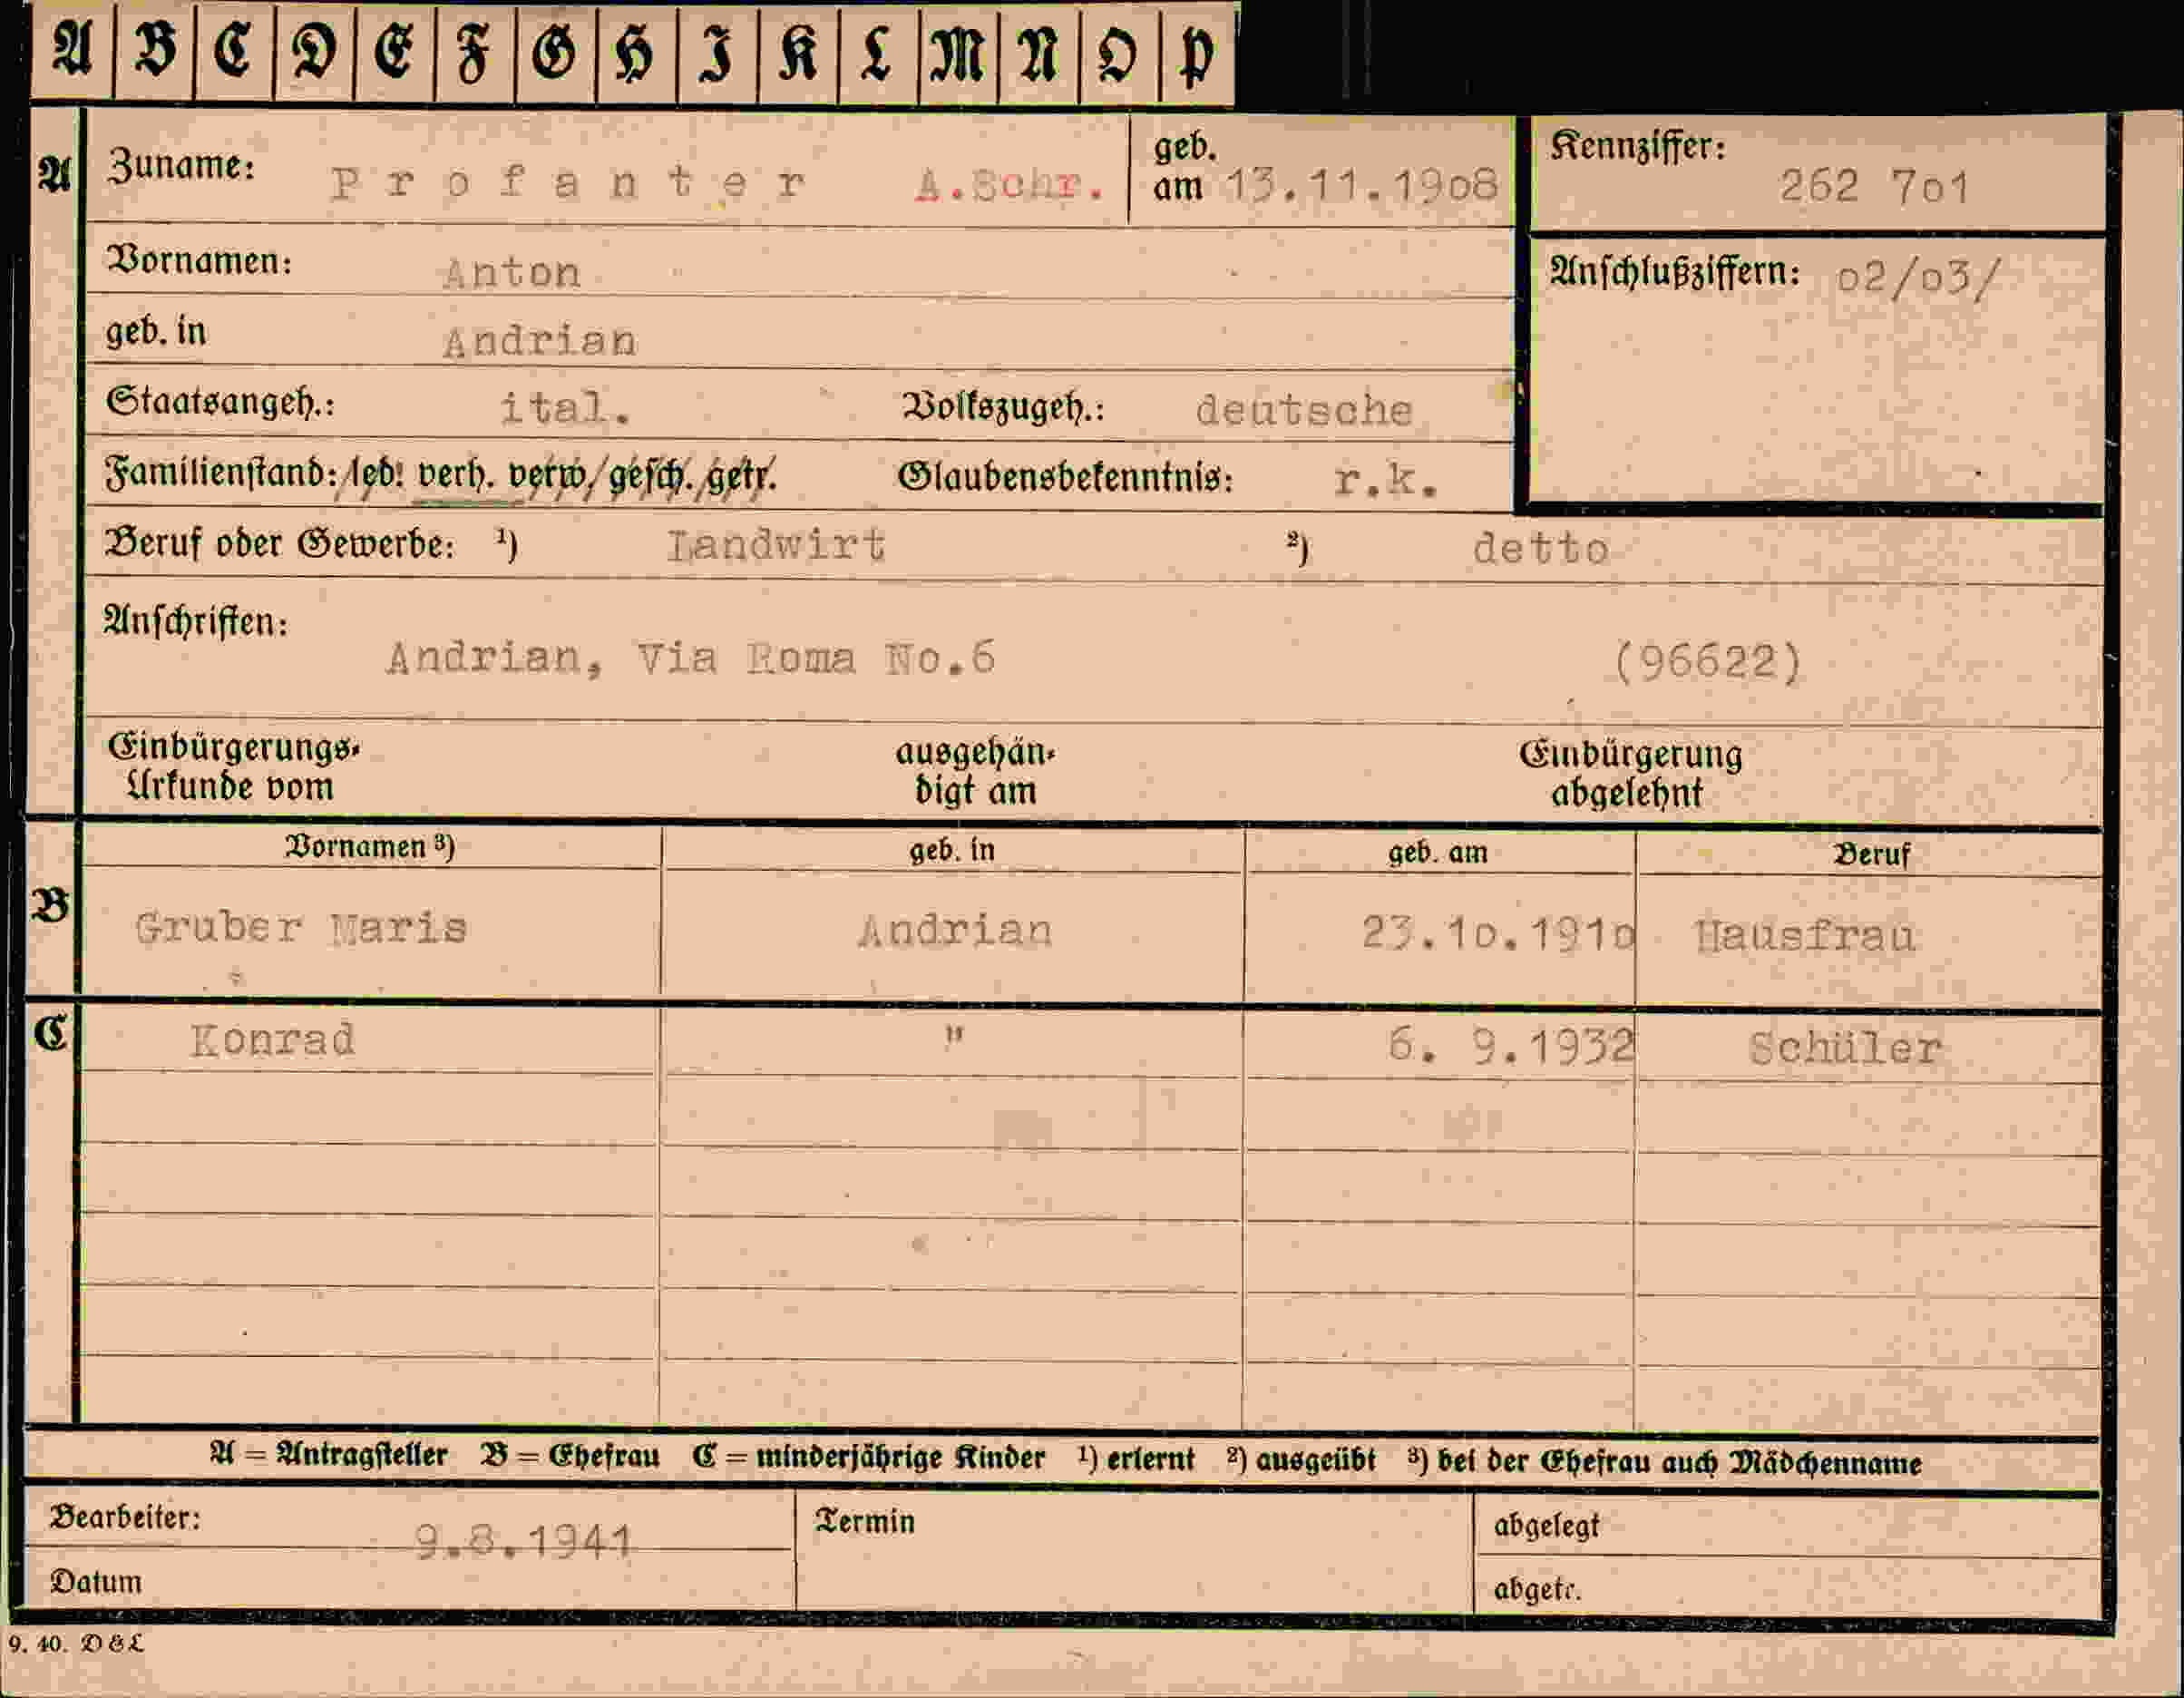 A B C D E F G H I K L M N O P
A Zuname: Profanter A.Schr. geb. am 13.11.1908 Kennziffer: 262 7o1
Vornamen: Anton
Anschlußziffern: o2/o3/
geb. in Andrian
Staatsangeh.: ital. Volkszugeh.: deutsche
Familienstand: led. verh. verw. gesch. getr. Glaubensbekenntnis: r.k.
Beruf oder Gewerbe: 1) Landwirt 2) detto
Anschriften:
Andrian, Via Roma No.6 (96622)
Einbürgerungs-Urkunde vom ausgehändigt am Einbürgerung abgelehnt
Vornamen 3) geb. in geb. am Beruf
B Gruber Maris Andrian 23.1o.191o Hausfrau
C Konrad " 6. 9.1932 Schüler
A = Antragsteller B = Ehefrau C = minderjährige Kinder 1) erlernt 2) ausgeübt 3) bei der Ehefrau auch Mädchenname
Bearbeiter: 9.8.1941 Termin abgelegt
Datum abgetr.
9. 40. D & L